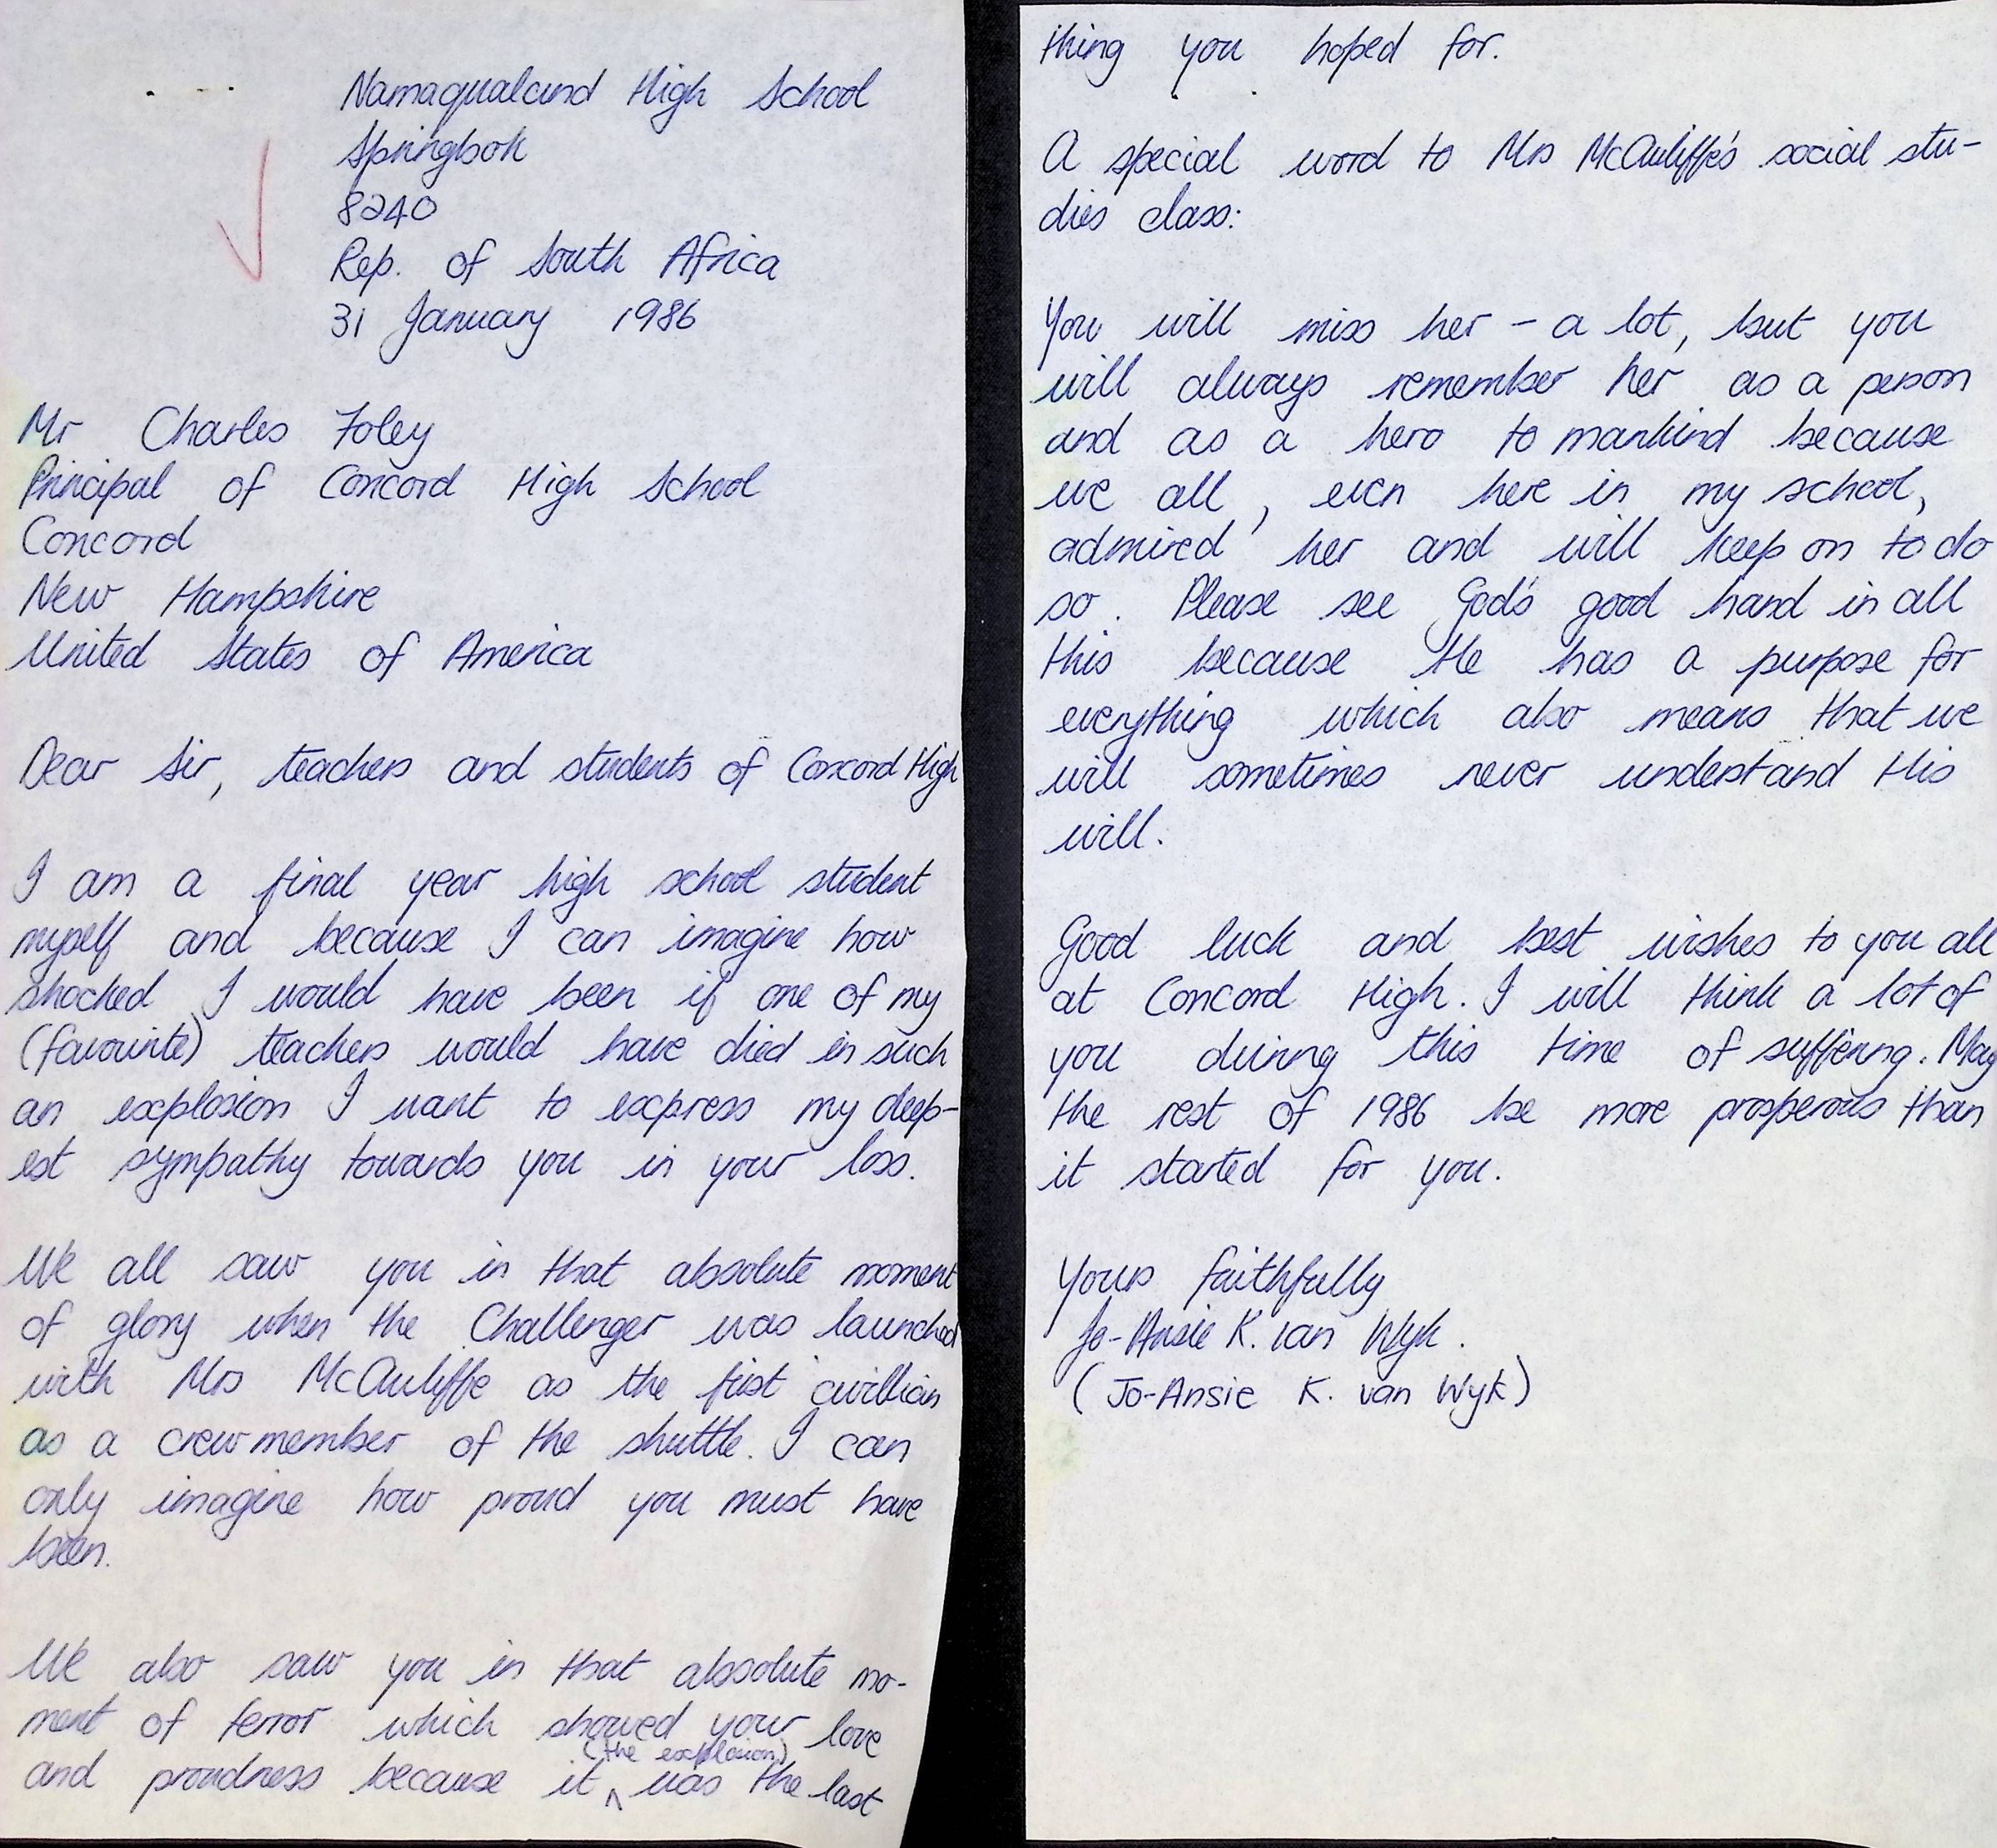 Namaqualand High School
Springbok
8240
Rep. of South Africa
31 January 1986
Mr Charles Foley
Principal of Concord High School
Concord
New Hampshire
United States of America
Dear Sir, teachers and students of Concord High
I am a final year high school student
myself and because I can imagine how
shocked I would have been if one of my
(favourite) teachers would have died in such
an explosion I want to express my deep-
est sympathy towards you in your loss.
We all saw you in that absolute moment
of glory when the Challenger was launched
with Mrs McAuliffe as the first civillian
as a crewmember of the shuttle. I can
only imagine how proud you must have
been.
We also saw you in that absolute mo-
ment of terror which showed your love
and proudness because it (the explosion) was the last
thing you hoped for.
A special word to Mrs McAuliffe's social stu-
dies class:
You will miss her - a lot, but you
will always remember her as a person
and as a hero to mankind because
we all, even here in my school,
admired her and will keep on to do
so. Please see God's good hand in all
this because He has a purpose for
everything which also means that we
will sometimes never understand His
will.
Good luck and best wishes to you all
at Concord High. I will think a lot of
you during this time of suffering. May
the rest of 1986 be more prosperous than
it started for you.
Yours faithfully
Jo-Ansie K. van Wyk.
(Jo-Ansie K. van Wyk)